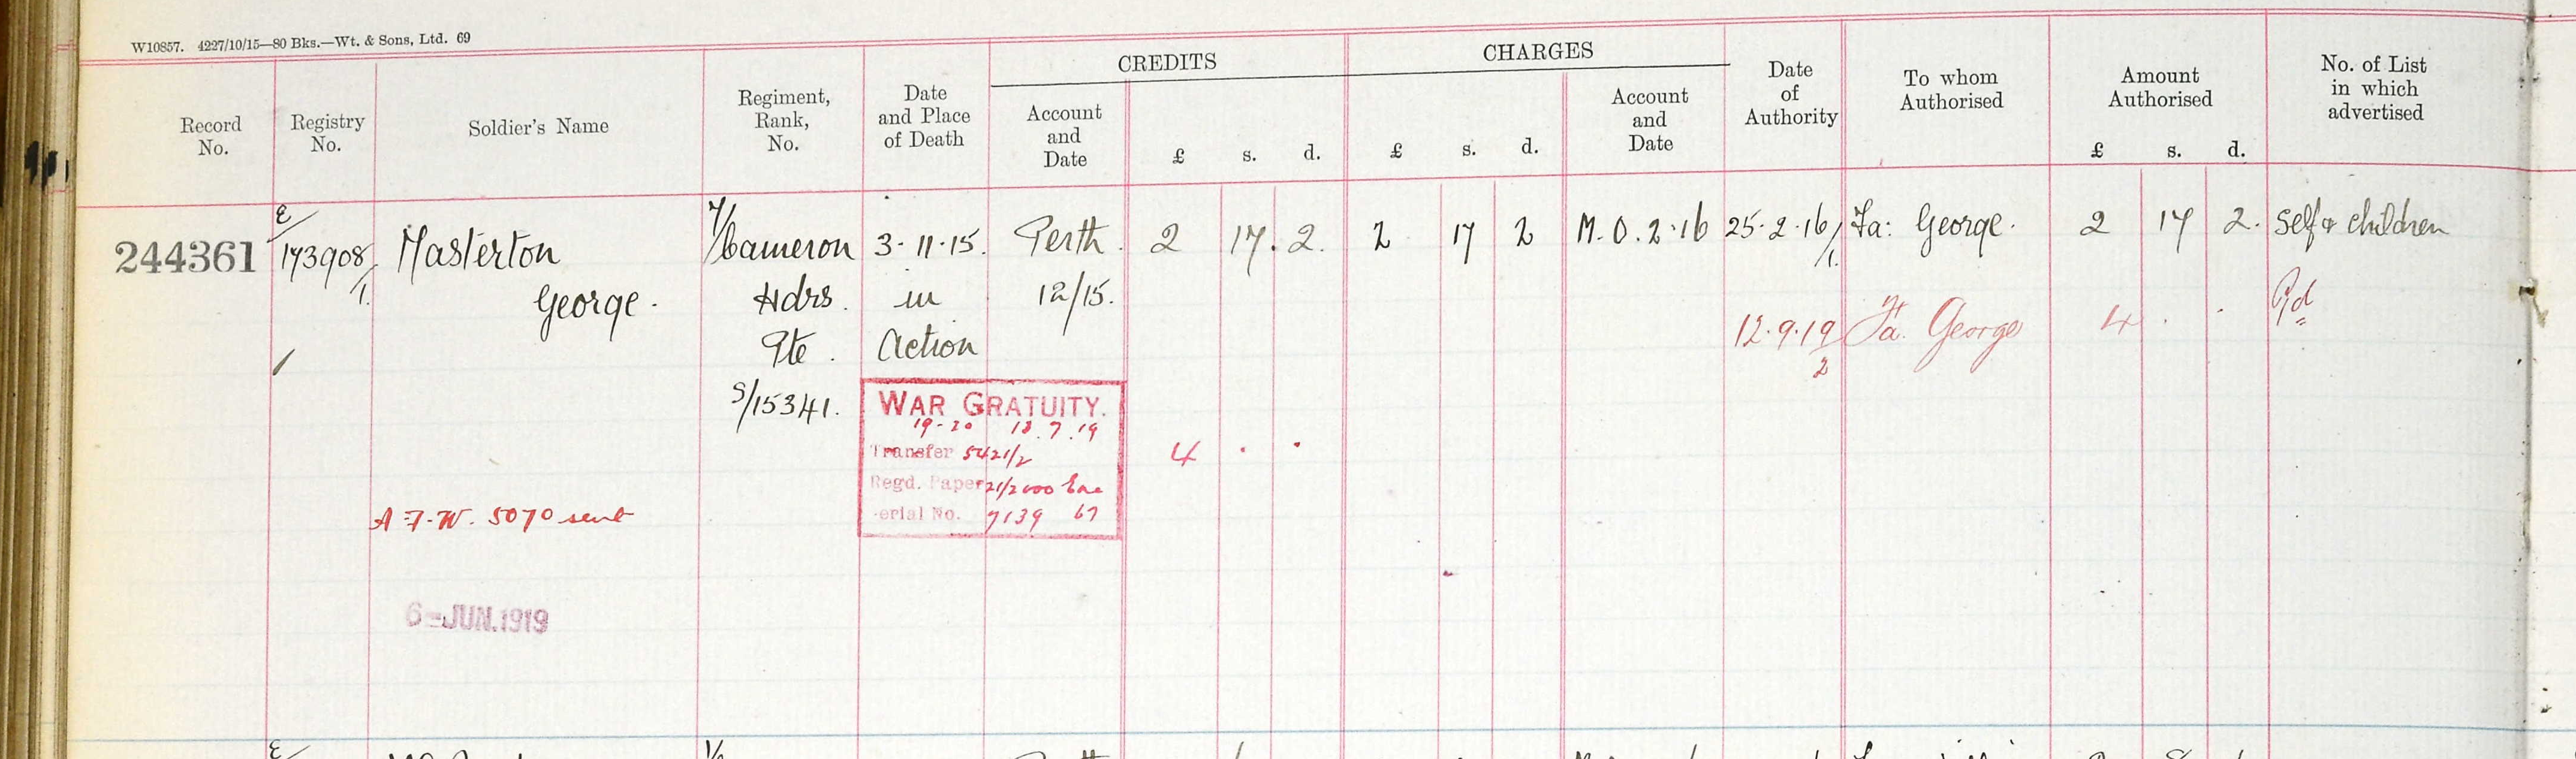 W10857. 4227/10/15—80 Bks.—Wt. & Sons, Ltd. 69
CREDITS
CHARGES
Record No.
Registry No.
Soldier's Name
Regiment, Rank, No.
Date and Place of Death
Account and Date
£ s. d.
£ s. d.
Account and Date
Date of Authority
To whom Authorised
Amount Authorised
£ s. d.
No. of List in which advertised
244361 E/173908/1. Masterton 7/Cameron 3-11-15. Perth. 2 17. 2. 2 17 2 M.O. 2.16 25.2.16/1. Fa: George. 2 17 2. Self & children
George. Hdrs. in 12/15.
Pte. Action
12.9.19/2 Fa. George 4 . . Pd
S/15341.
WAR GRATUITY.
19-20 18.7.19
Transfer 5421/2 4 . .
Regd. Paper 21/2000
erial No. 7139 67
A F.W. 5070 sent
6-JUN.1919